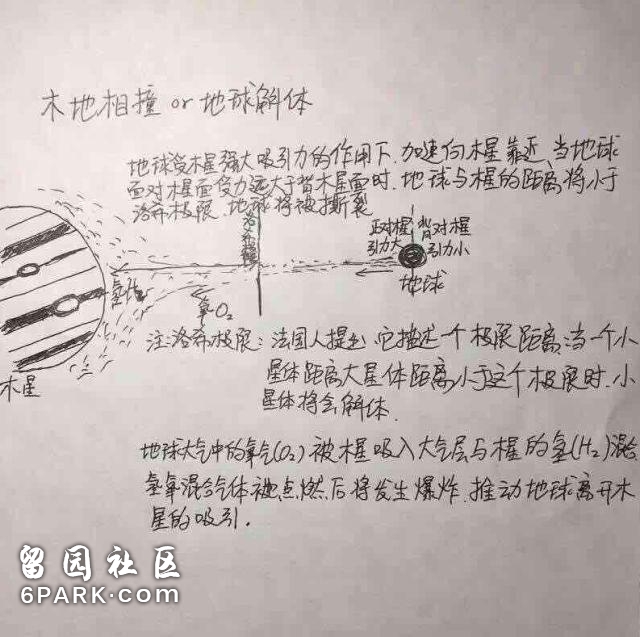 木地相撞or地球解体
地球受木星强大吸引力的作用下.加速向木星靠近,当地球
面对木星面受力远大于背木星面时.地球与木星的距离将小于
洛希极限.地球将被撕裂
洛希极限
正对木星
引力大
背对木星
引力小
氢H₂
氧O₂
地球
木星
注:洛希极限:法国人提出.它描述一个极限距离.当一个小
星体距离大星体距离小于这个极限时.小
星体将会解体.
地球大气中的氧气(O₂)被木星吸入大气层与木星的氢(H₂)混合
氢氧混合气体被点燃后将发生爆炸.推动地球离开木
星的吸引.
留园社区
6PARK.com